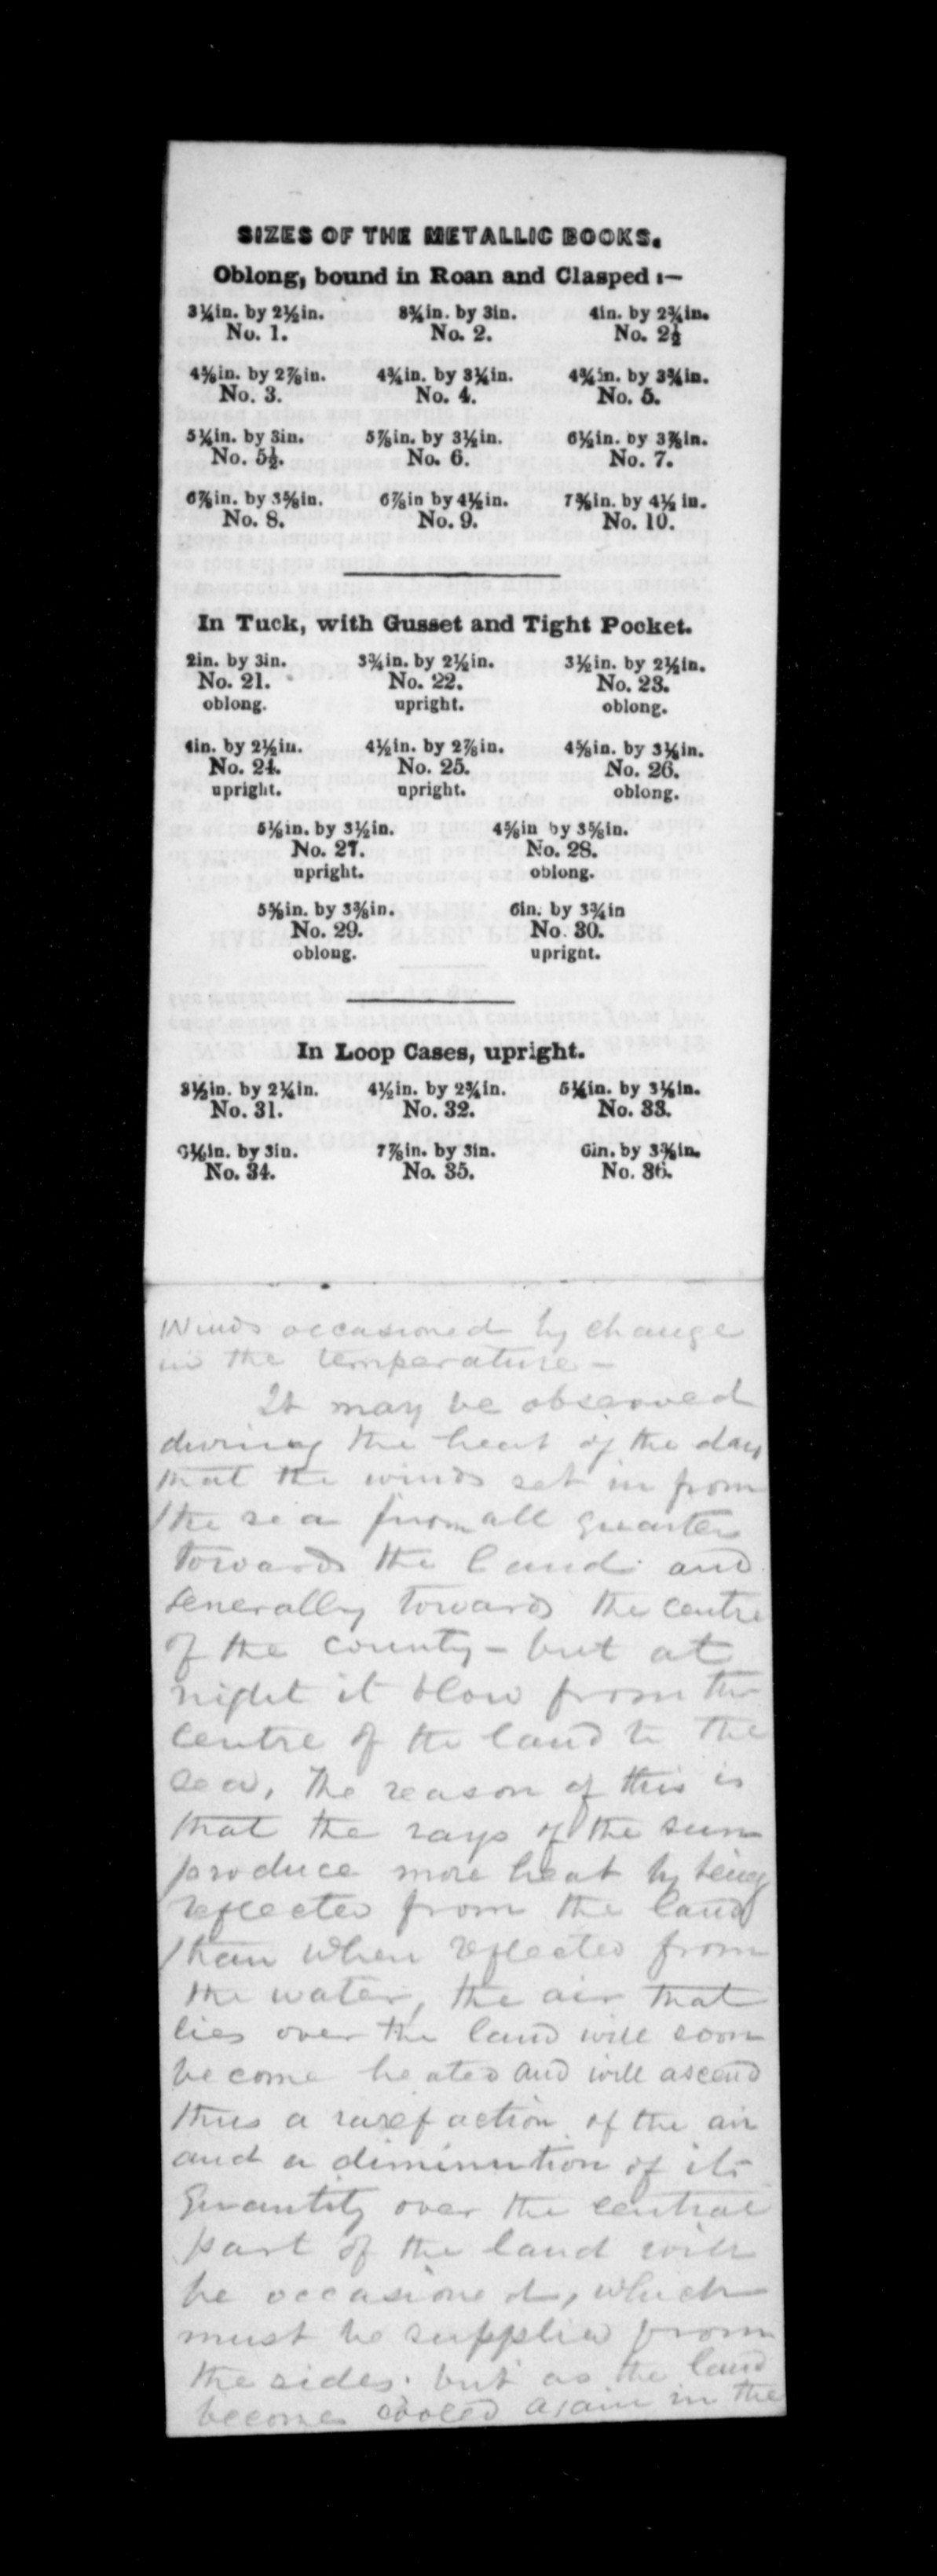 SIZES OF THE METALLIC BOOKS.
Oblong, bound in Roan and Clasped :—
3¼in. by 2½in. 3¾in. by 3in. 4in. by 2¾in.
No. 1. No. 2. No. 2½
4⅝in. by 2⅞in. 4¾in. by 3¼in. 4¾in. by 3¾in.
No. 3. No. 4. No. 5.
5¼in. by 3in. 5⅞in. by 3½in. 6½in. by 3⅞in.
No. 5½. No. 6. No. 7.
6⅞in. by 3⅝in. 6⅞in by 4½in. 7⅝in. by 4½ in.
No. 8. No. 9. No. 10.
In Tuck, with Gusset and Tight Pocket.
2in. by 3in. 3¾in. by 2½in. 3½in. by 2½in.
No. 21. No. 22. No. 23.
oblong. upright. oblong.
4in. by 2½in. 4½in. by 2⅞in. 4⅝in. by 3⅛in.
No. 24. No. 25. No. 26.
upright. upright. oblong.
5⅛in. by 3½in. 4⅝in by 3⅝in.
No. 27. No. 28.
upright. oblong.
5⅝in. by 3⅜in. 6in. by 3¾in
No. 29. No. 30.
oblong. upright.
In Loop Cases, upright.
3½in. by 2¼in. 4½in. by 2¾in. 5¼in. by 3¼in.
No. 31. No. 32. No. 33.
6⅛in. by 3in. 7⅞in. by 3in. 6in. by 3⅜in.
No. 34. No. 35. No. 36.
Winds occasioned by change
in the temperature —
It may be observed
during the heat of the day
that the winds set in from
the sea from all quarters
towards the land and
Generally towards the centre
of the county – but at
night it blow from the
centre of the land to the
sea, The reason of this is
that the rays of the sun
produce more heat by being
reflected from the land
than when reflected from
the water, the air that
lies over the land will soon
become heated and will ascend
thus a rarefaction of the air
and a diminution of its
Quantity over the central
part of the land will
be occasioned, which
must be supplied from
the sides. but as the land
becomes cooled again in the